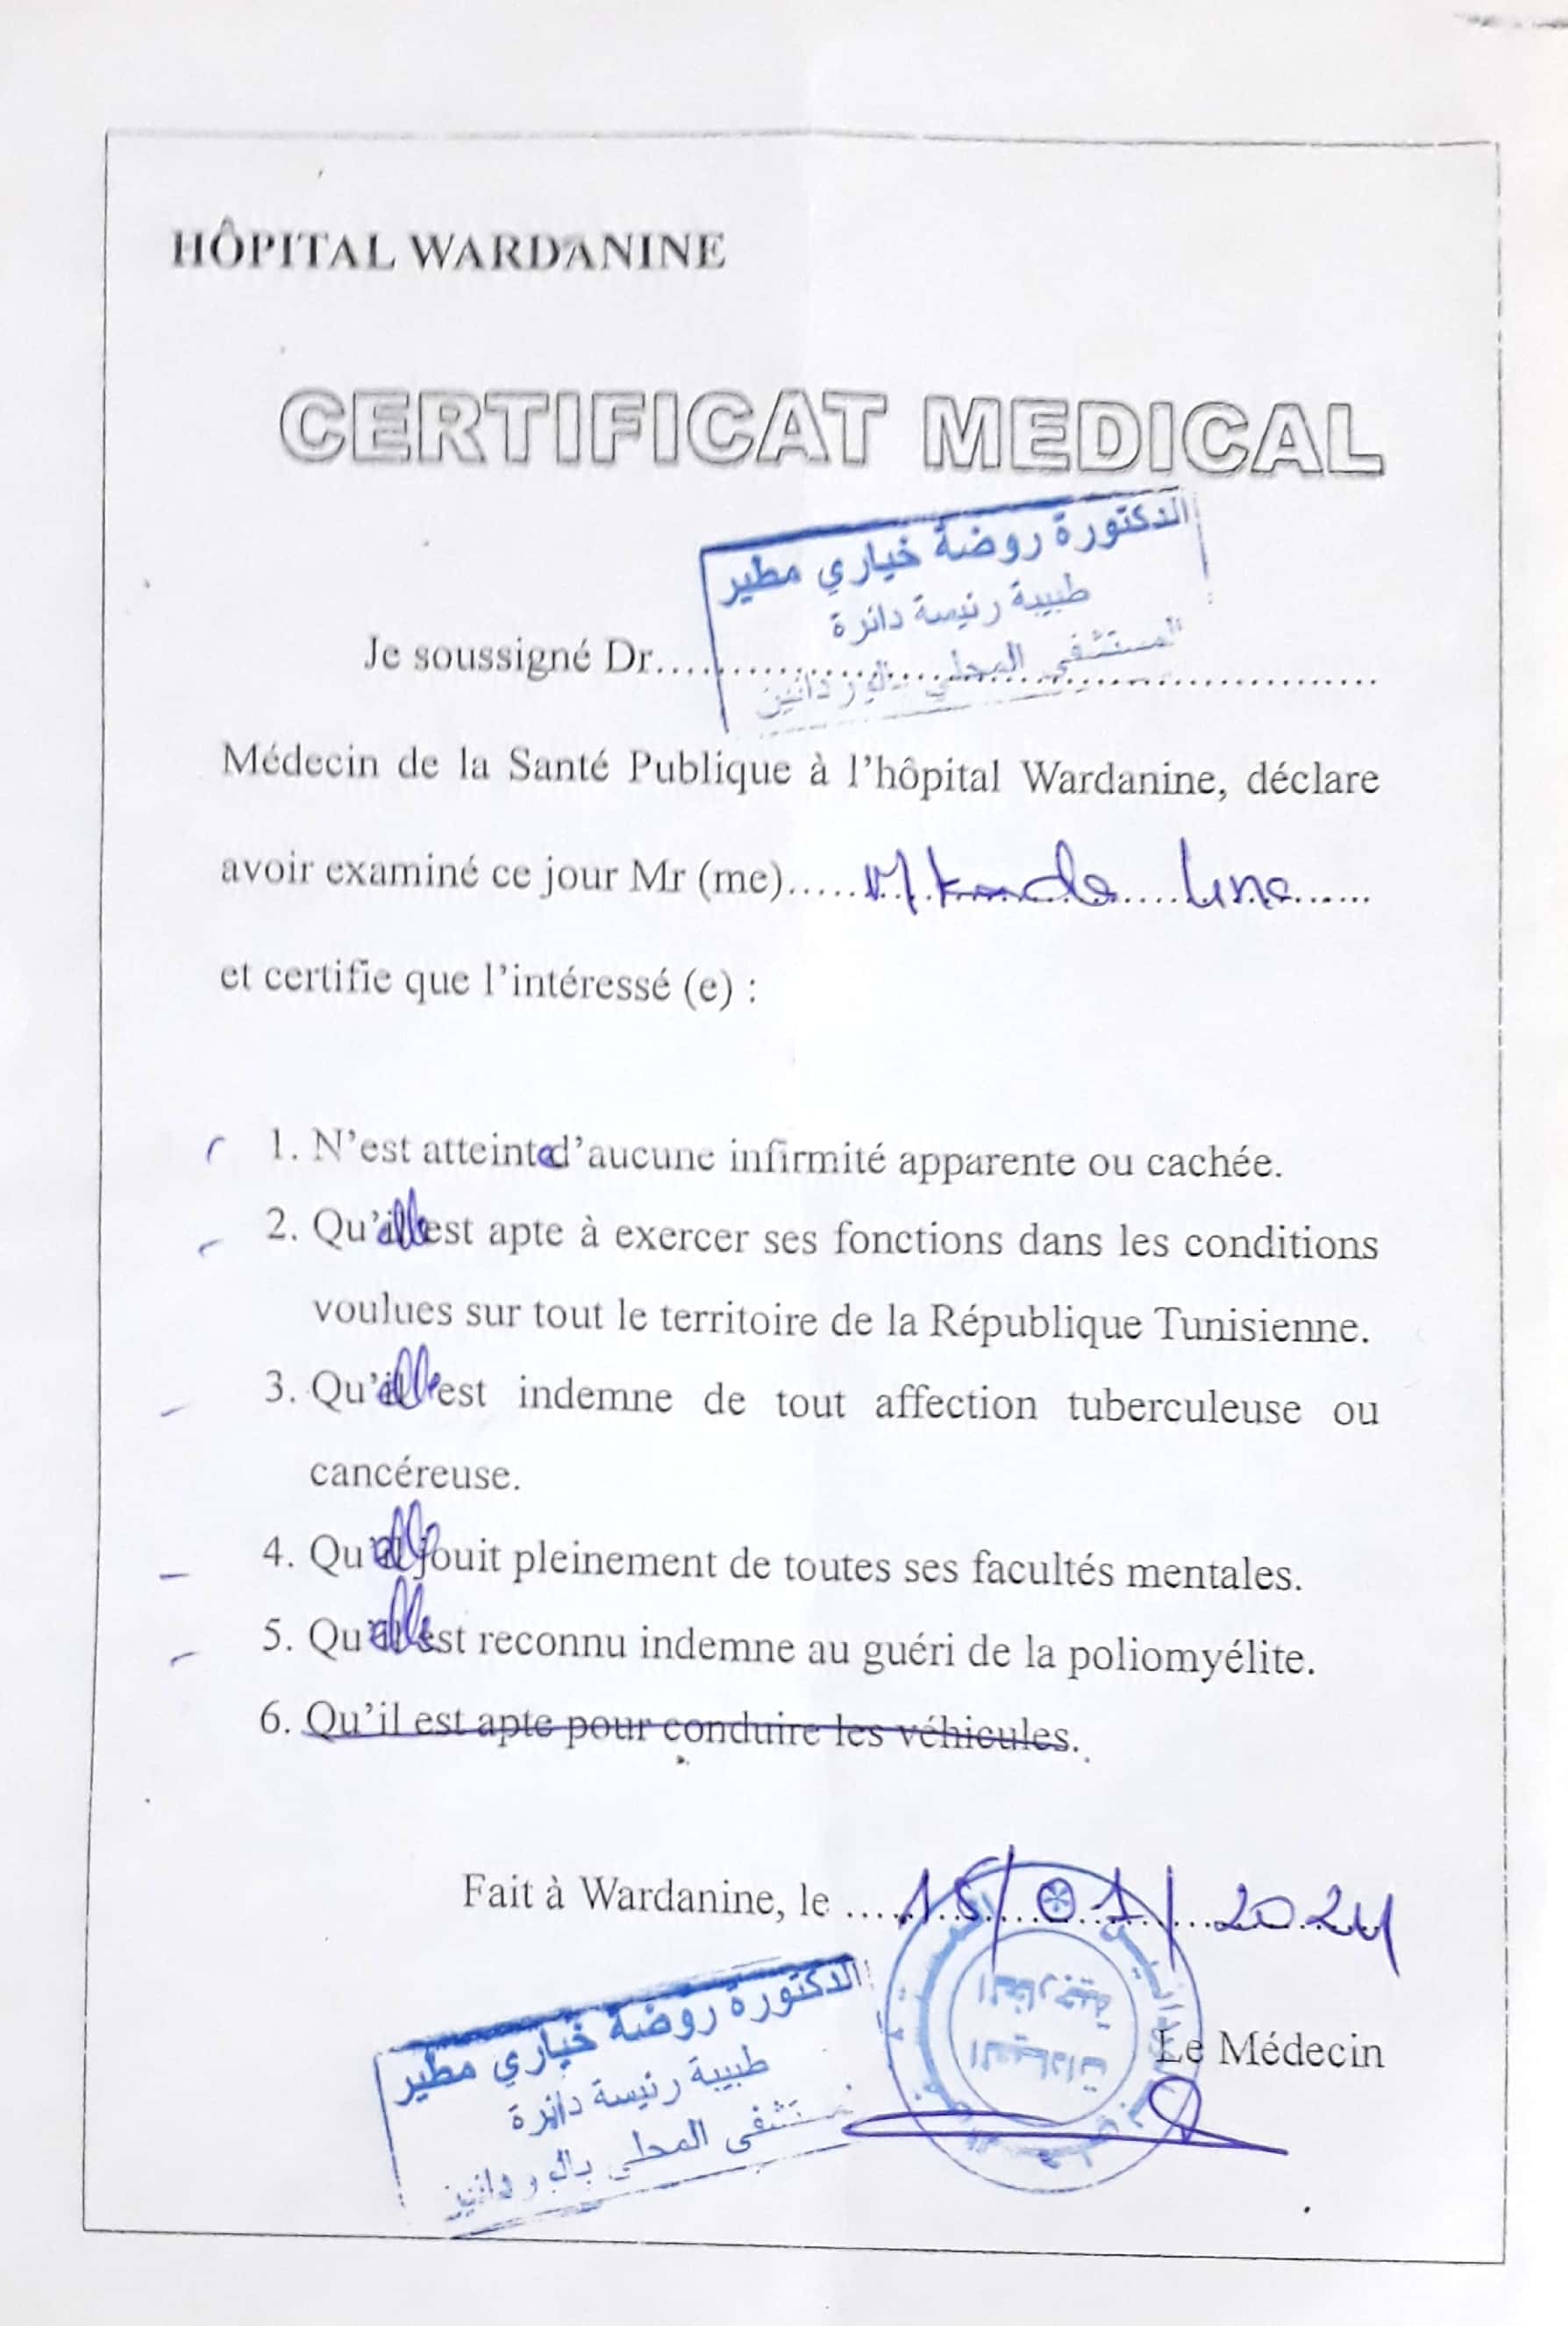 HÔPITAL WARDANINE
CERTIFICAT MEDICAL
الدكتورة روضة خياري مطير
طبيبة رئيسة دائرة
المستشفى المحلي بالوردانين
Je soussigné Dr..........................................................
Médecin de la Santé Publique à l'hôpital Wardanine, déclare
avoir examiné ce jour Mr (me).....
et certifie que l'intéressé (e) :
1. N'est atteinte d'aucune infirmité apparente ou cachée.
2. Qu'elle est apte à exercer ses fonctions dans les conditions
voulues sur tout le territoire de la République Tunisienne.
3. Qu'elle est indemne de tout affection tuberculeuse ou
cancéreuse.
4. Qu'elle jouit pleinement de toutes ses facultés mentales.
5. Qu'elle est reconnu indemne au guéri de la poliomyélite.
6. Qu'il est apte pour conduire les véhicules.
Fait à Wardanine, le 15/01/2024
العيادات
الخارجية
Le Médecin
الدكتورة روضة خياري مطير
طبيبة رئيسة دائرة
مستشفى المحلي بالوردانين